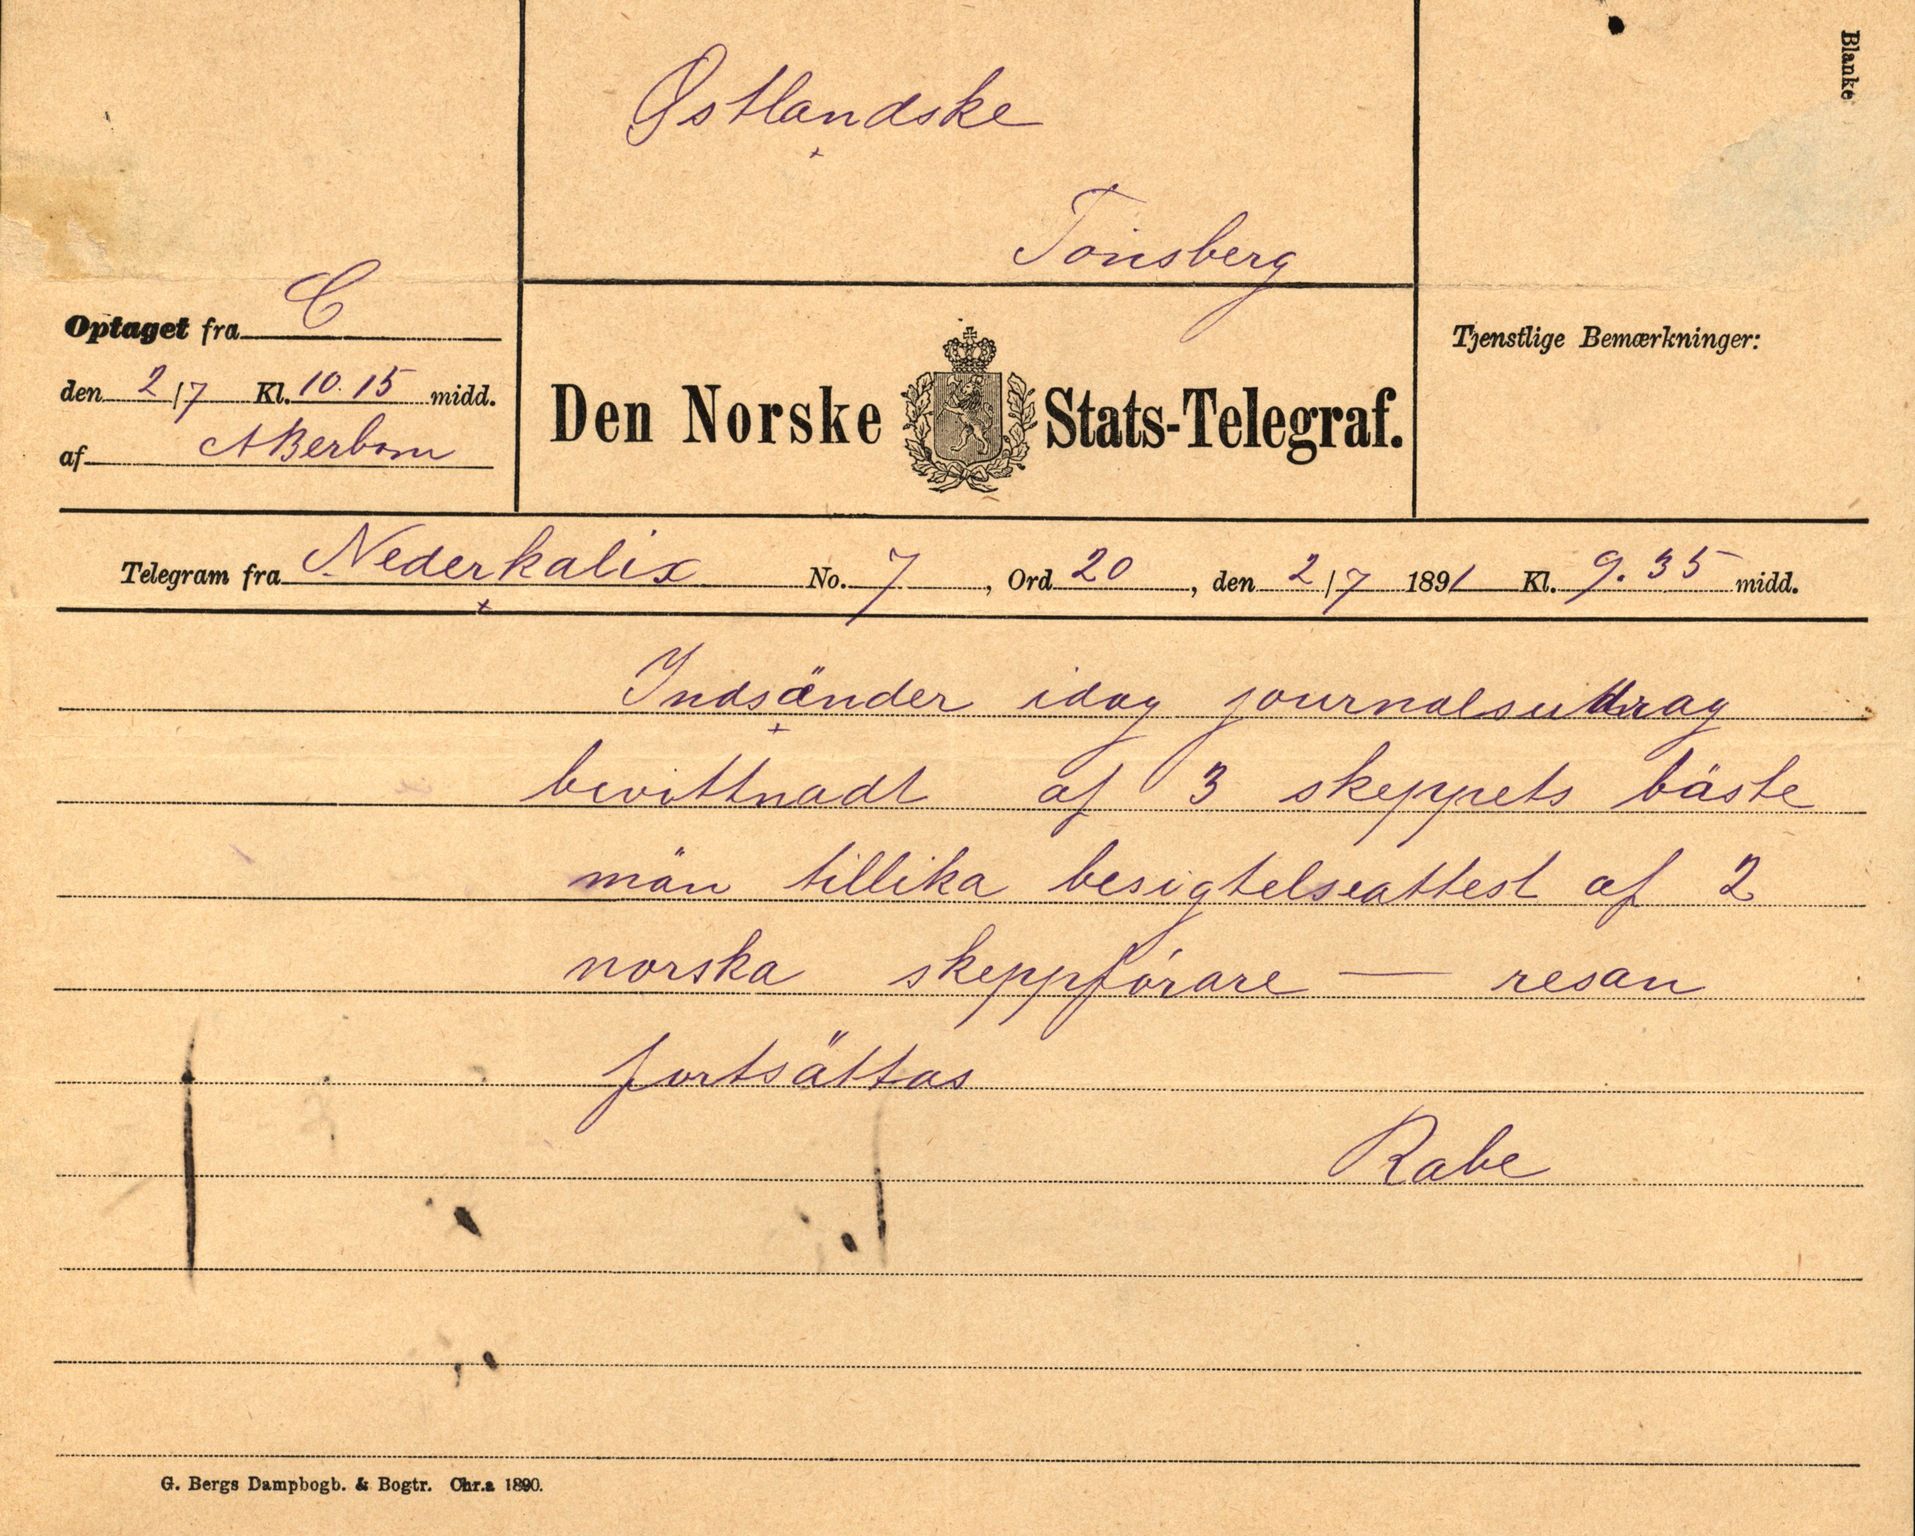 Blanke
Østlandske
Tønsberg
Optaget fra C
den 2/7 Kl. 10.15 midd.
af ABerbom
Den Norske Stats-Telegraf.
Tjenstlige Bemærkninger:
Telegram fra Nederkalix No. 7, Ord 20, den 2/7 1891 Kl. 9.35 midd.
Indsänder idag journalsutdrag
bevittnadt af 3 skeppets bäste
män tillika besigtelseattest af 2
norska skeppförare — resan
fortsättas
Rabe
G. Bergs Dampbogb. & Bogtr. Chr.a 1890.